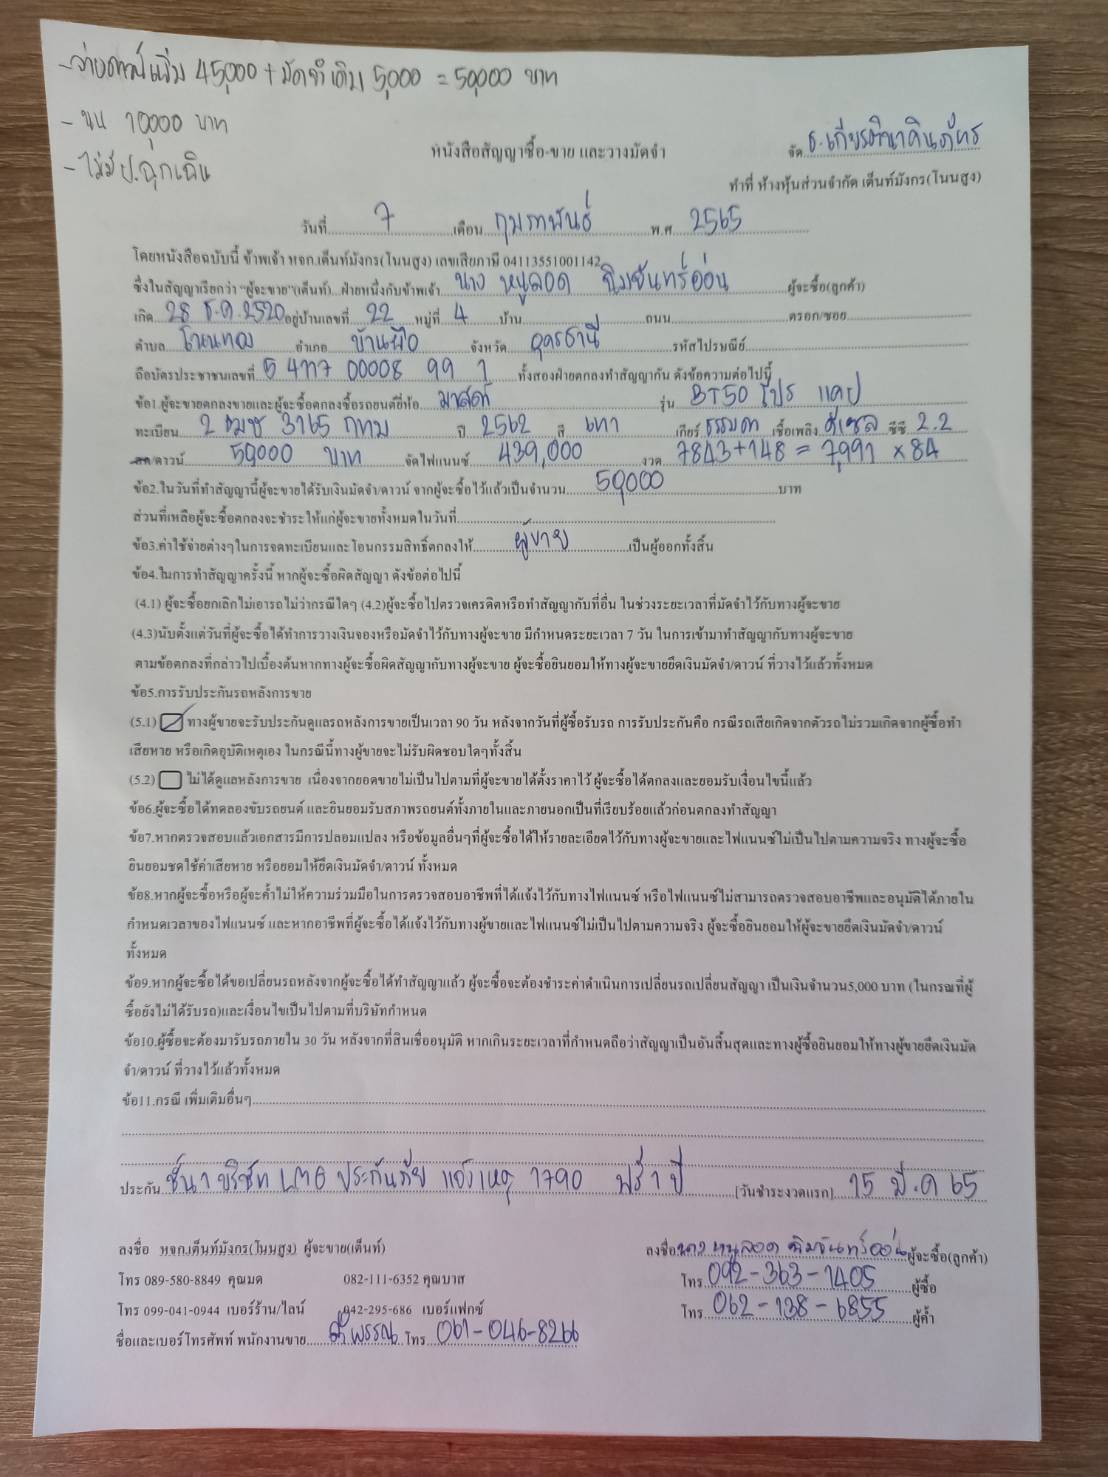 - วางดาวน์เพิ่ม 45,000 + มัดจำเดิม 5,000 = 50,000 บาท
- 10,000 บาท
- ไม่มีป.ฉุกเฉิน
หนังสือสัญญาซื้อ-ขาย และวางมัดจำ
จัด ธ.เกียรตินาคินภัทร
ทำที่ ห้างหุ้นส่วนจำกัด เต็นท์มังกร(โนนสูง)
วันที่ 7 เดือน กุมภาพันธ์ พ.ศ. 2565
โดยหนังสือฉบับนี้ ข้าพเจ้า หจก.เต็นท์มังกร(โนนสูง) เลขเสียภาษี 04113551001142
ซึ่งในสัญญาเรียกว่า "ผู้จะขาย"(เต็นท์)...ฝ่ายหนึ่งกับข้าพเจ้า นาง หนูลอด ฉิมจันทร์อ่อน ผู้จะซื้อ(ลูกค้า)
เกิด 28 ธ.ค. 2520 อยู่บ้านเลขที่ 22 หมู่ที่ 4 บ้าน ถนน ตรอก/ซอย
ตำบล โนนทอง อำเภอ บ้านผือ จังหวัด อุดรธานี รหัสไปรษณีย์
ถือบัตรประชาชนเลขที่ 5 4117 00008 99 1 ทั้งสองฝ่ายตกลงทำสัญญากัน ดังข้อความต่อไปนี้
ข้อ1.ผู้จะขายตกลงขายและผู้จะซื้อตกลงซื้อรถยนต์ยี่ห้อ มาสด้า รุ่น BT50 โปร แคป
ทะเบียน 2 ฒฆ 3165 กทม ปี 2562 สี เทา เกียร์ ธรรมดา เชื้อเพลิง ดีเซล ซีซี 2.2
สด/ดาวน์ 50,000 บาท จัดไฟแนนซ์ 439,000 งวด 7843+148 = 7,991 x 84
ข้อ2.ในวันที่ทำสัญญานี้ผู้จะขายได้รับเงินมัดจำ/ดาวน์ จากผู้จะซื้อไว้แล้วเป็นจำนวน 50,000 บาท
ส่วนที่เหลือผู้จะซื้อตกลงจะชำระให้แก่ผู้จะขายทั้งหมดในวันที่
ข้อ3.ค่าใช้จ่ายต่างๆในการจดทะเบียนและโอนกรรมสิทธิ์ตกลงให้ ผู้ขาย เป็นผู้ออกทั้งสิ้น
ข้อ4.ในการทำสัญญาครั้งนี้ หากผู้จะซื้อผิดสัญญา ดังข้อต่อไปนี้
(4.1) ผู้จะซื้อยกเลิกไม่เอารถไม่ว่ากรณีใดๆ (4.2)ผู้จะซื้อไปตรวจเครดิตหรือทำสัญญากับที่อื่น ในช่วงระยะเวลาที่มัดจำไว้กับทางผู้จะขาย
(4.3)นับตั้งแต่วันที่ผู้จะซื้อได้ทำการวางเงินจองหรือมัดจำไว้กับทางผู้จะขาย มีกำหนดระยะเวลา 7 วัน ในการเข้ามาทำสัญญากับทางผู้จะขาย
ตามข้อตกลงที่กล่าวไปเบื้องต้นหากทางผู้จะซื้อผิดสัญญากับทางผู้จะขาย ผู้จะซื้อยินยอมให้ทางผู้จะขายยึดเงินมัดจำ/ดาวน์ ที่วางไว้แล้วทั้งหมด
ข้อ5.การรับประกันรถหลังการขาย
(5.1) ทางผู้ขายจะรับประกันดูแลรถหลังการขายเป็นเวลา 90 วัน หลังจากวันที่ผู้ซื้อรับรถ การรับประกันคือ กรณีรถเสียเกิดจากตัวรถไม่รวมเกิดจากผู้ซื้อทำ
เสียหาย หรือเกิดอุบัติเหตุเอง ในกรณีนี้ทางผู้ขายจะไม่รับผิดชอบใดๆทั้งสิ้น
(5.2) ไม่ได้ดูแลหลังการขาย เนื่องจากยอดขายไม่เป็นไปตามที่ผู้จะขายได้ตั้งราคาไว้ ผู้จะซื้อได้ตกลงและยอมรับเงื่อนไขนี้แล้ว
ข้อ6.ผู้จะซื้อได้ทดลองขับรถยนต์ และยินยอมรับสภาพรถยนต์ทั้งภายในและภายนอกเป็นที่เรียบร้อยแล้วก่อนตกลงทำสัญญา
ข้อ7.หากตรวจสอบแล้วเอกสารมีการปลอมแปลง หรือข้อมูลอื่นๆที่ผู้จะซื้อได้ให้รายละเอียดไว้กับทางผู้จะขายและไฟแนนซ์ไม่เป็นไปตามความจริง ทางผู้จะซื้อ
ยินยอมชดใช้ค่าเสียหาย หรือยอมให้ยึดเงินมัดจำ/ดาวน์ ทั้งหมด
ข้อ8.หากผู้จะซื้อหรือผู้จะค้ำไม่ให้ความร่วมมือในการตรวจสอบอาชีพที่ได้แจ้งไว้กับทางไฟแนนซ์ หรือไฟแนนซ์ไม่สามารถตรวจสอบอาชีพและอนุมัติได้ภายใน
กำหนดเวลาของไฟแนนซ์ และหากอาชีพที่ผู้จะซื้อได้แจ้งไว้กับทางผู้ขายและไฟแนนซ์ไม่เป็นไปตามความจริง ผู้จะซื้อยินยอมให้ผู้จะขายยึดเงินมัดจำ/ดาวน์
ทั้งหมด
ข้อ9.หากผู้จะซื้อได้ขอเปลี่ยนรถหลังจากผู้จะซื้อได้ทำสัญญาแล้ว ผู้จะซื้อจะต้องชำระค่าดำเนินการเปลี่ยนรถเปลี่ยนสัญญา เป็นเงินจำนวน5,000 บาท (ในกรณที่ผู้
ซื้อยังไม่ได้รับรถ)และเงื่อนไขเป็นไปตามที่บริษัทกำหนด
ข้อ10.ผู้ซื้อจะต้องมารับรถภายใน 30 วัน หลังจากที่สินเชื่ออนุมัติ หากเกินระยะเวลาที่กำหนดถือว่าสัญญาเป็นอันสิ้นสุดและทางผู้ซื้อยินยอมให้ทางผู้ขายยึดเงินมัด
จำ/ดาวน์ ที่วางไว้แล้วทั้งหมด
ข้อ11.กรณี เพิ่มเติมอื่นๆ
ประกัน ชั้น 1 บริษัท LMG ประกันภัย แจ้งเหตุ 1790 ฟรี 1 ปี [วันชำระงวดแรก] 15 มี.ค 65
ลงชื่อ หจก.เต็นท์มังกร(โนนสูง) ผู้จะขาย(เต็นท์) ลงชื่อ นาง หนูลอด ฉิมจันทร์อ่อน ผู้จะซื้อ(ลูกค้า)
โทร 089-580-8849 คุณมด 082-111-6352 คุณบาส โทร 092-363-1405 ผู้ซื้อ
โทร 099-041-0944 เบอร์ร้าน/ไลน์ 042-295-686 เบอร์แฟกซ์ โทร 062-138-6855 ผู้ค้ำ
ชื่อและเบอร์โทรศัพท์ พนักงานขาย โทร 061-046-8266